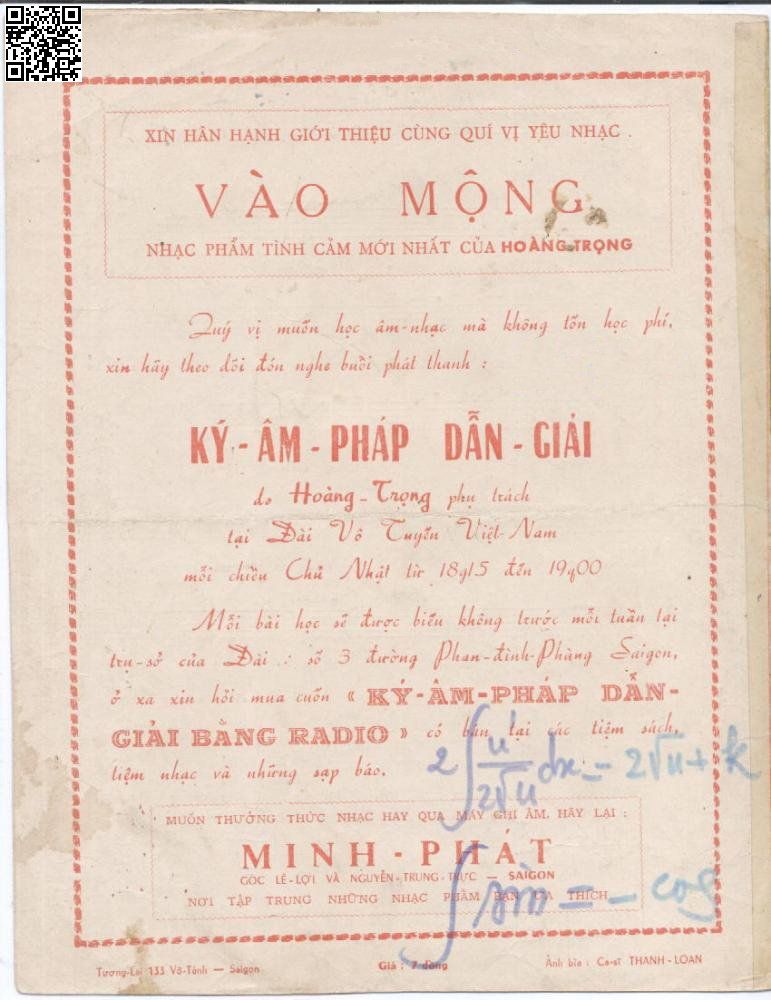 XIN HÂN HẠNH GIỚI THIỆU CÙNG QUÍ VỊ YÊU NHẠC .
VÀO MỘNG
NHẠC PHẨM TÌNH CẢM MỚI NHẤT CỦA HOÀNG TRỌNG
Quý vị muốn học âm-nhạc mà không tốn học phí,
xin hãy theo dõi đón nghe buổi phát thanh :
KÝ - ÂM - PHÁP DẪN - GIẢI
do Hoàng - Trọng phụ trách
tại Đài Vô Tuyến Việt-Nam
mỗi chiều Chủ Nhật từ 18g15 đến 19g00
Mỗi bài học sẽ được biếu không trước mỗi tuần tại
trụ-sở của Đài : số 3 đường Phan-đình-Phùng Saigon,
ở xa xin hỏi mua cuốn « KÝ-ÂM-PHÁP DẪN-
GIẢI BẰNG RADIO » có bán tại các tiệm sách,
tiệm nhạc và những sạp báo.
2∫ u'/2√u dx = 2√u + k
MUỐN THƯỞNG THỨC NHẠC HAY QUA MÁY GHI ÂM, HÃY LẠI :
MINH - PHÁT
GÓC LÊ-LỢI VÀ NGUYỄN-TRUNG-TRỰC — SAIGON
NƠI TẬP TRUNG NHỮNG NHẠC PHẨM BẠN ƯA THÍCH
∫ sin = - cos
Tương-Lai 133 Võ-Tánh — Saigon
Giá : 7 đồng
Ảnh bìa : Ca-sĩ THANH-LOAN